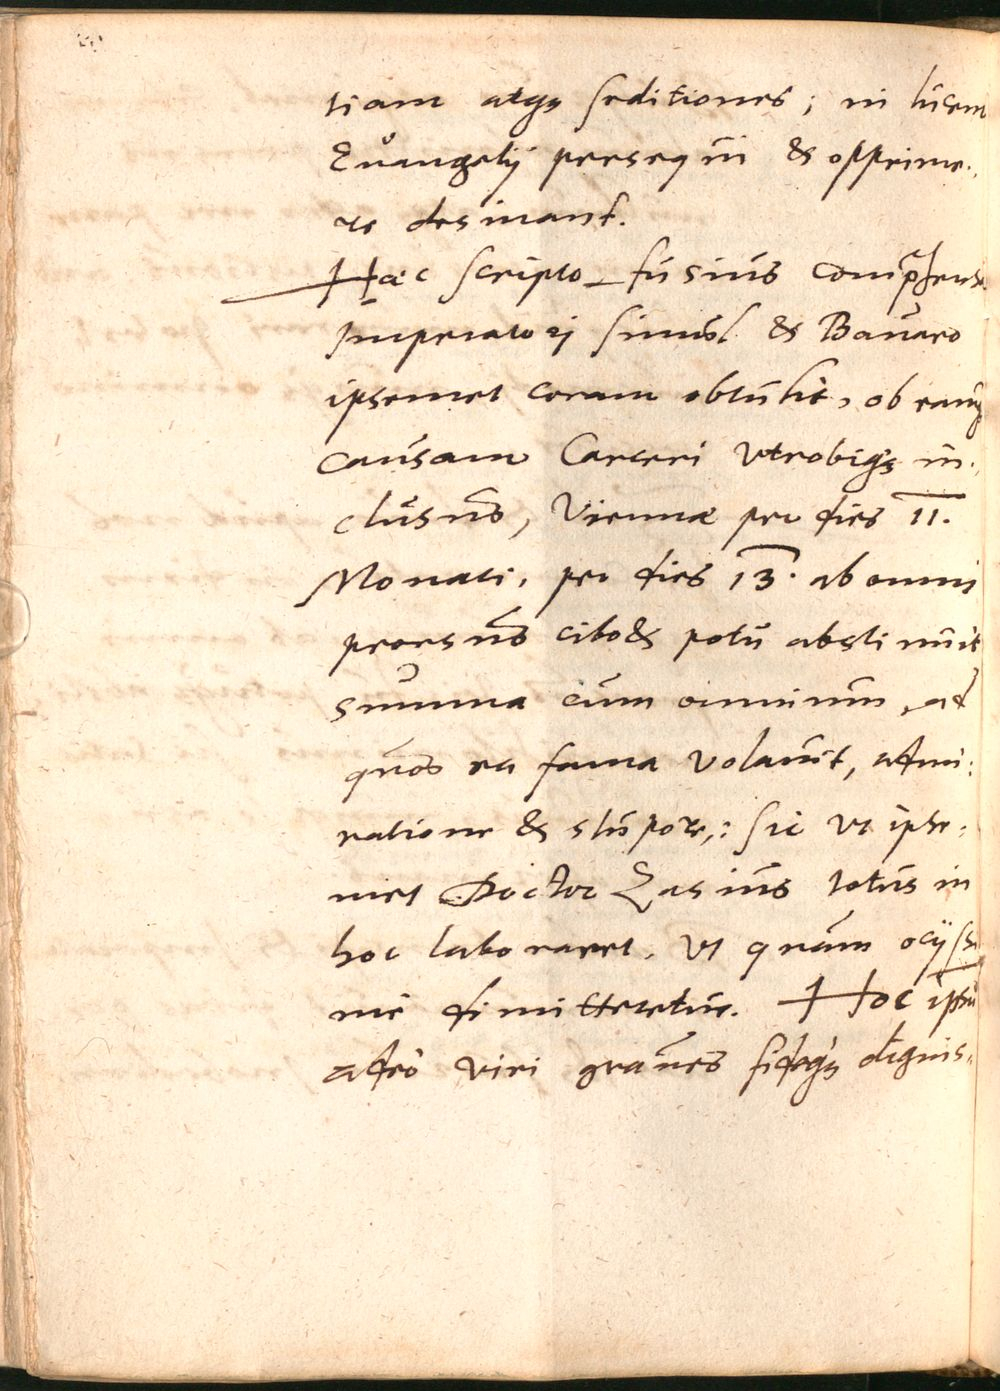 tiam atqꝫ seditiones; ni lucem
Evangelij persequi & opprime-
re desinant.
Haec scripto fusius comp̄hensa
Imperatori simul & Bavaro
ipsemet coram obtulit, ob eamqꝫ
causam Carceri utrobiqꝫ in-
clusus, Viennae per dies 11.
Monaci, per dies 13. ab omni
prorsus cibo & potu abstinuit
summa cum omnium, ad
quos ea fama volavit, admi-
ratione & stupore: sic ut ipse-
met Doctor Zasius totus in
hoc laboraret, ut quàm ocyssi
mè dimitteretur. Hoc ipsū
adeò viri graves fideqꝫ dignis-